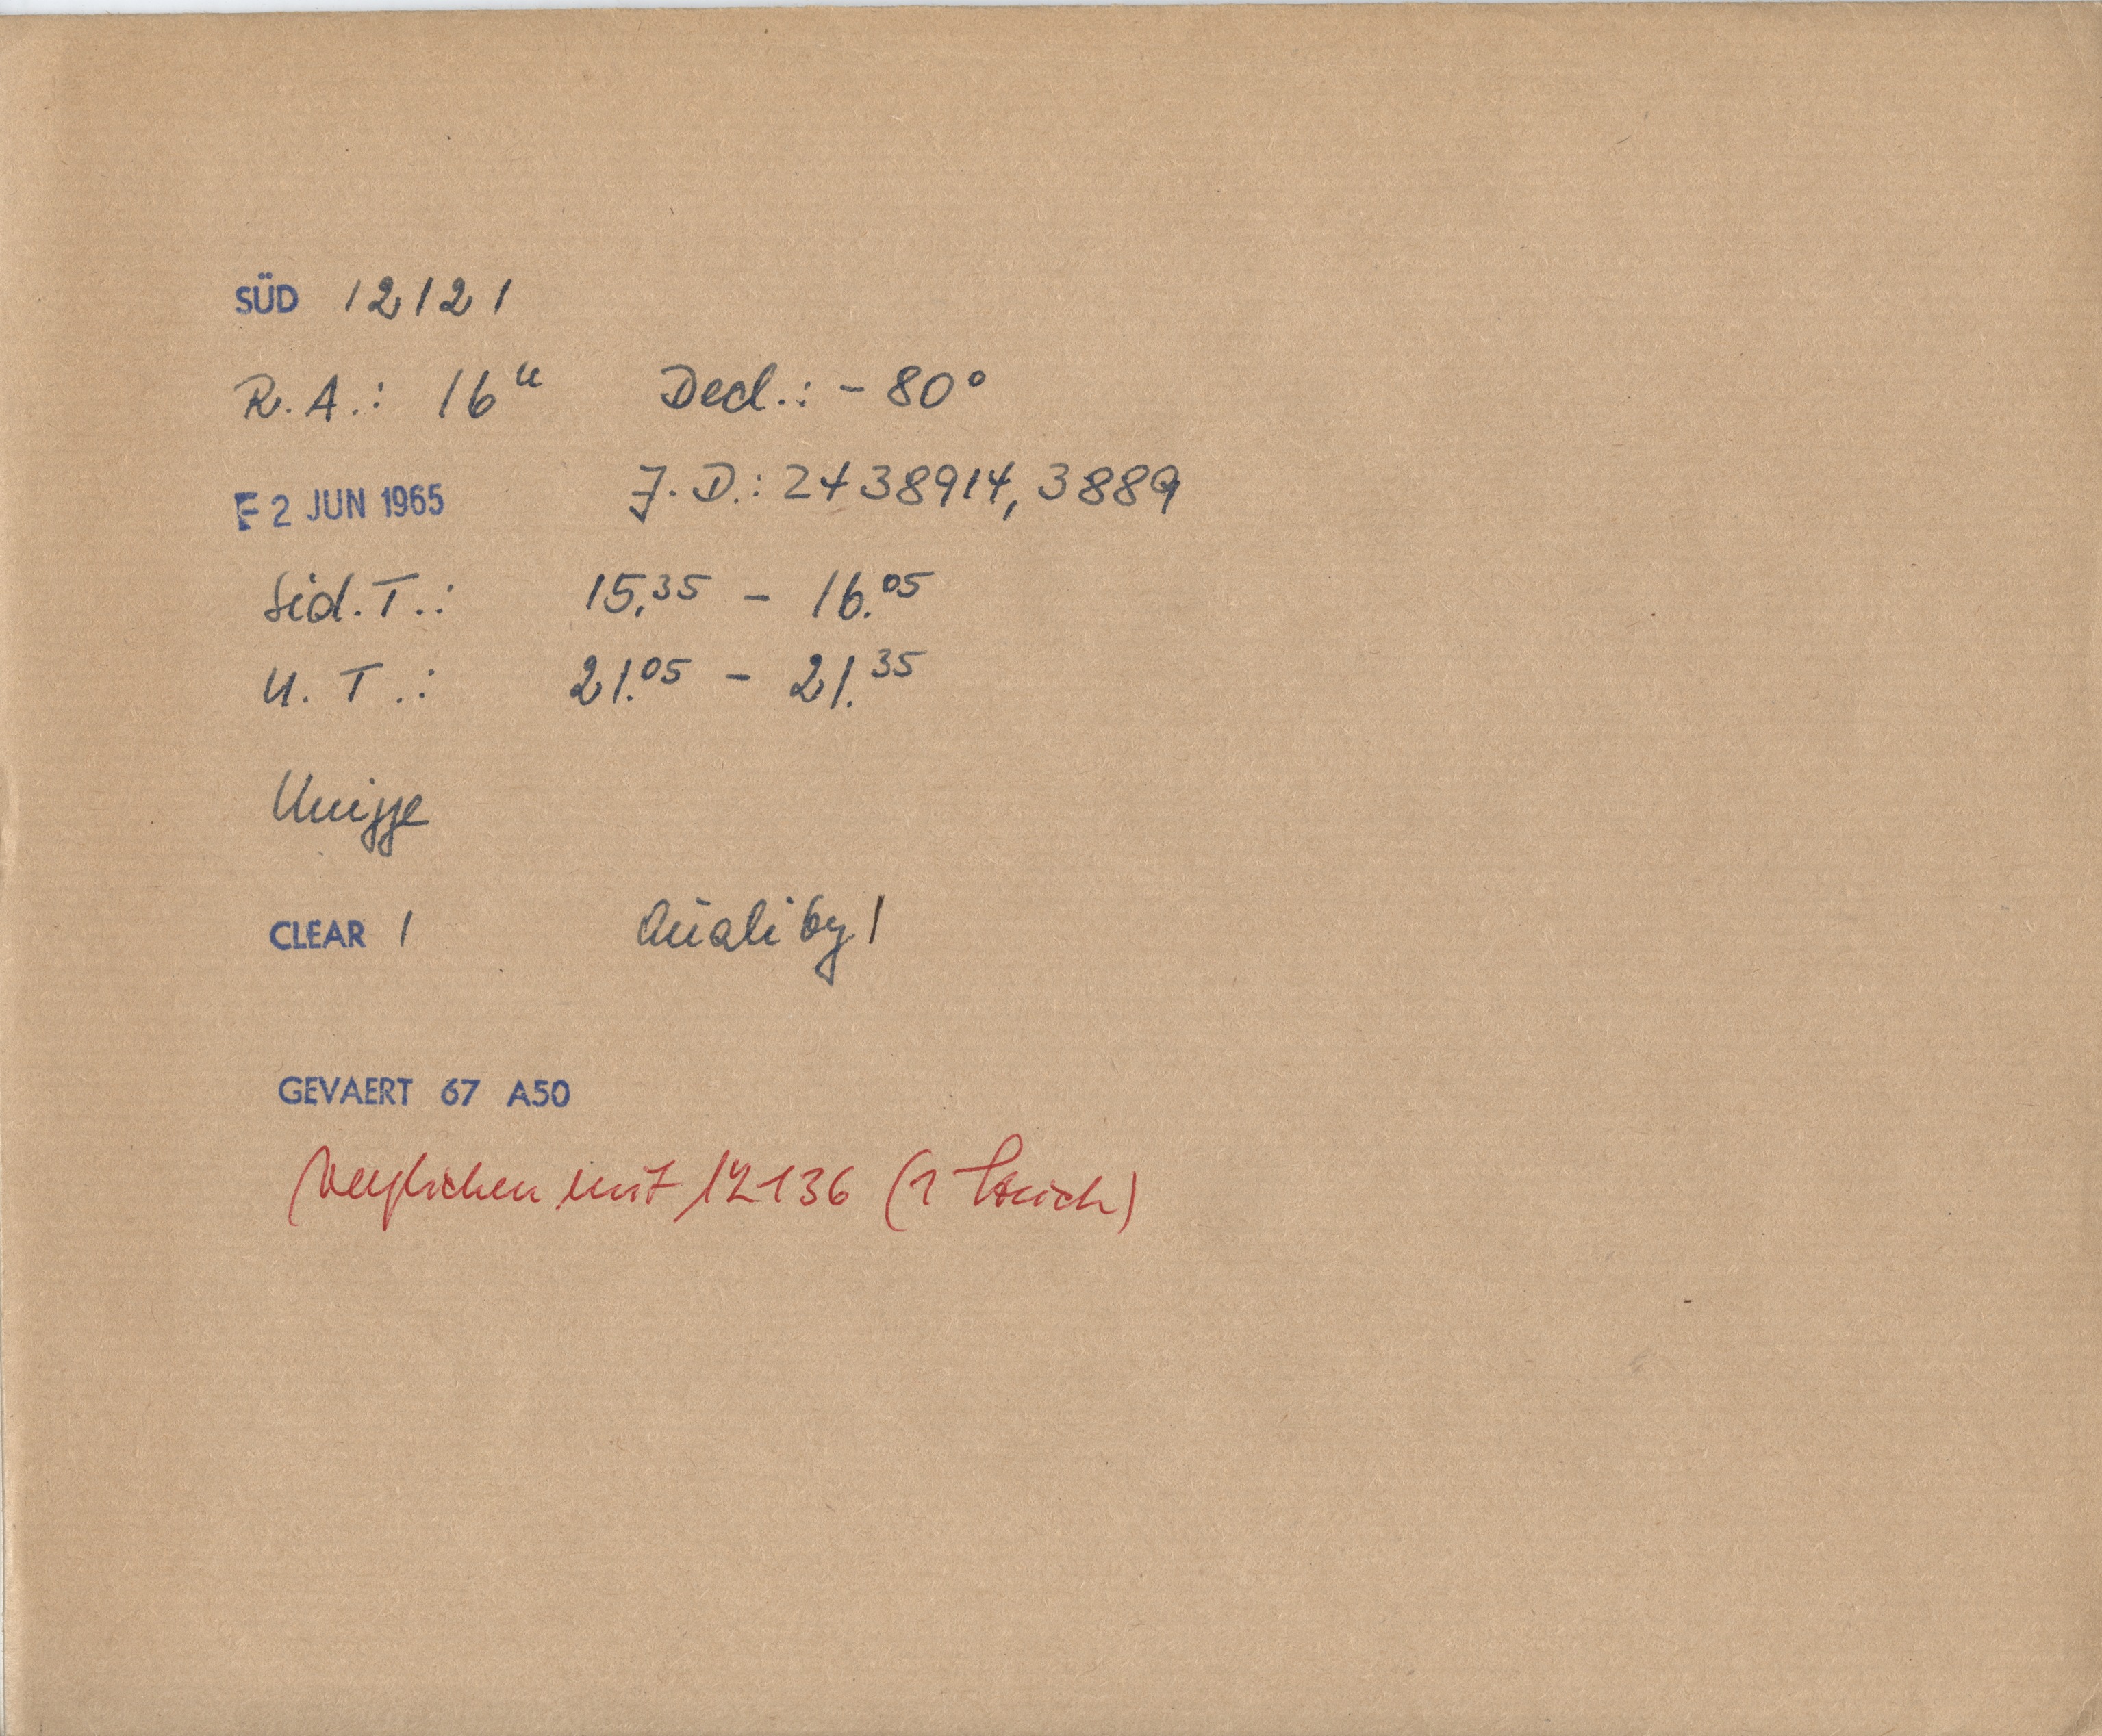 SÜD 12121
R.A.: 16ᵘ Decl.: - 80°
F 2 JUN 1965 J.D.: 2438914,3889
Sid.T.: 15.³⁵ - 16.⁰⁵
U.T.: 21.⁰⁵ - 21.³⁵
CLEAR 1 Quality 1
GEVAERT 67 A50
Verglichen mit 12136 (1 Strich)